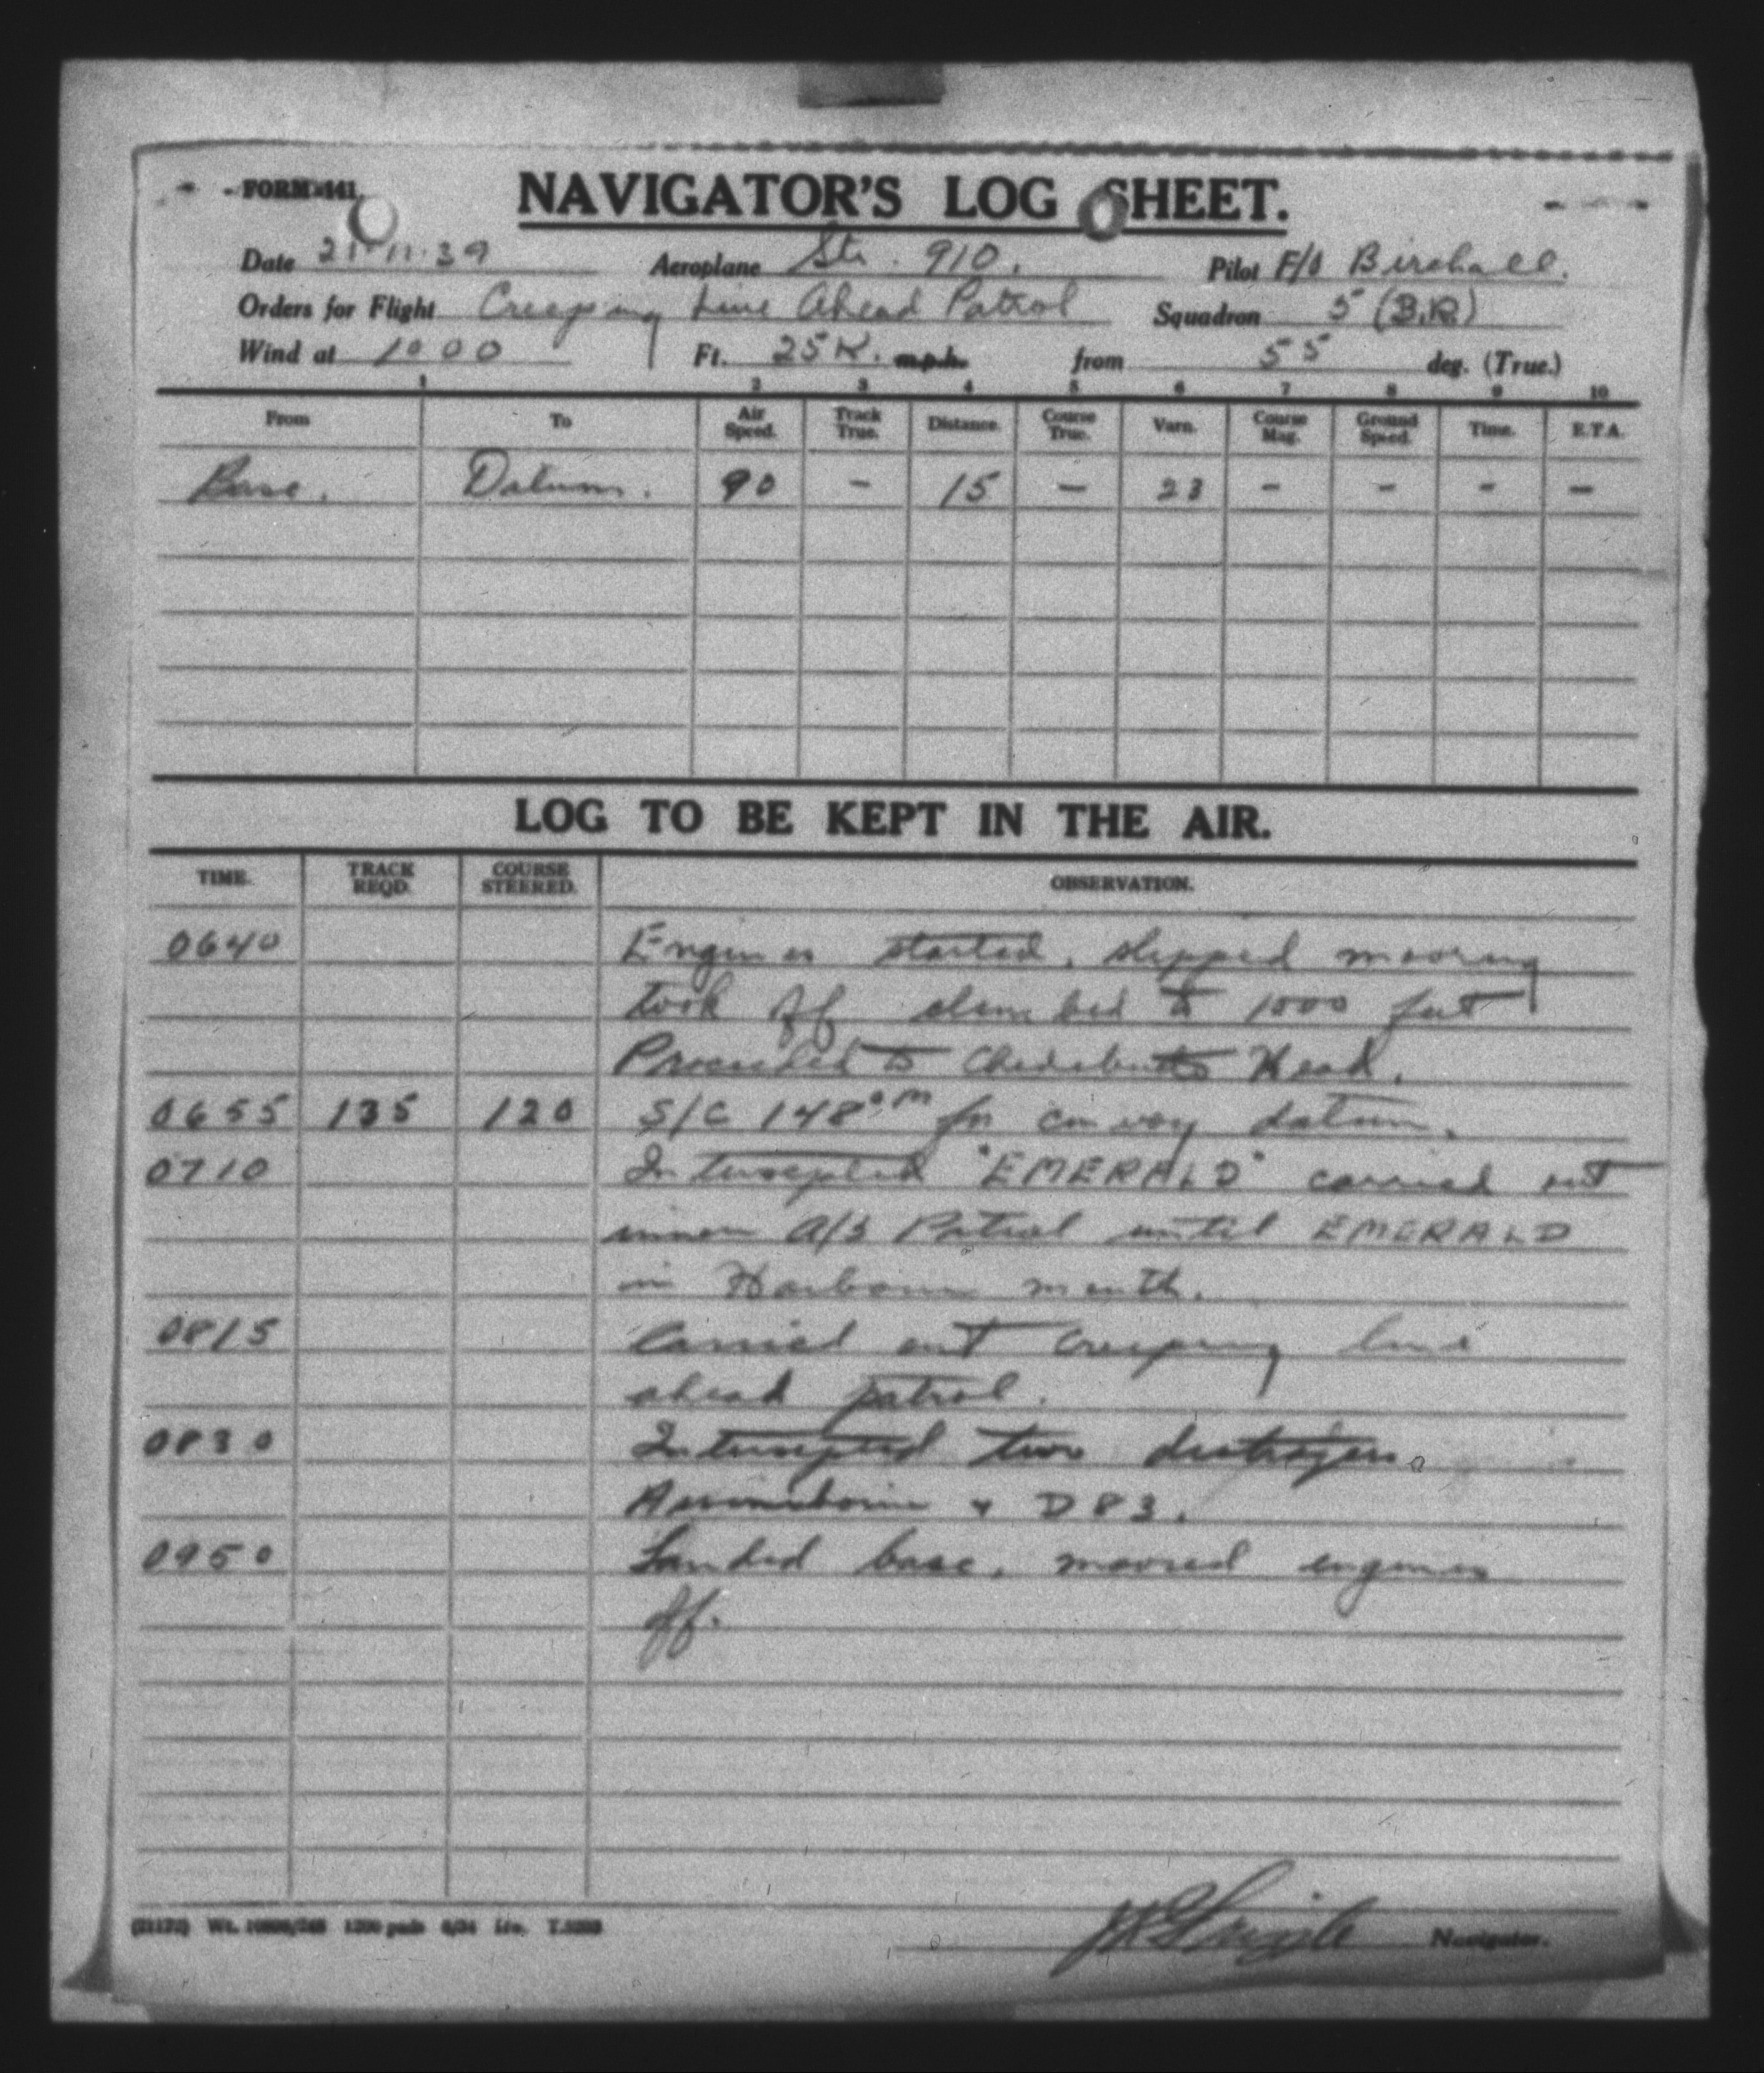 FORM 441.
NAVIGATOR'S LOG SHEET.
Date 21-11-39 Aeroplane Str. 910. Pilot F/O Birchall.
Orders for Flight Creeping Line Ahead Patrol Squadron 5 (B.R.)
Wind at 1000 Ft. 25 K. m.p.h. from 55 deg. (True.)
1 2 3 4 5 6 7 8 9 10
From To Air Speed. Track True. Distance. Course True. Varn. Course Mag. Ground Speed. Time. E.T.A.
Base. Datum. 90 - 15 - 23 - - - -
LOG TO BE KEPT IN THE AIR.
TIME. TRACK REQD. COURSE STEERED. OBSERVATION.
0640 Engines started, slipped mooring
took off climbed to 1000 feet
Proceeded to Chedabucto Head.
0655 135 120 S/C 148°M for convoy datum.
0710 Intercepted "EMERALD" carried out
inner A/S Patrol until EMERALD
in Harbour mouth.
0815 Carried out creeping line
ahead patrol.
0830 Intercepted two destroyers.
Assiniboine & D83.
0950 Landed base, moored engines
off.
(21172) Wt. 1200 pads 6/34 T.5203
Navigator.